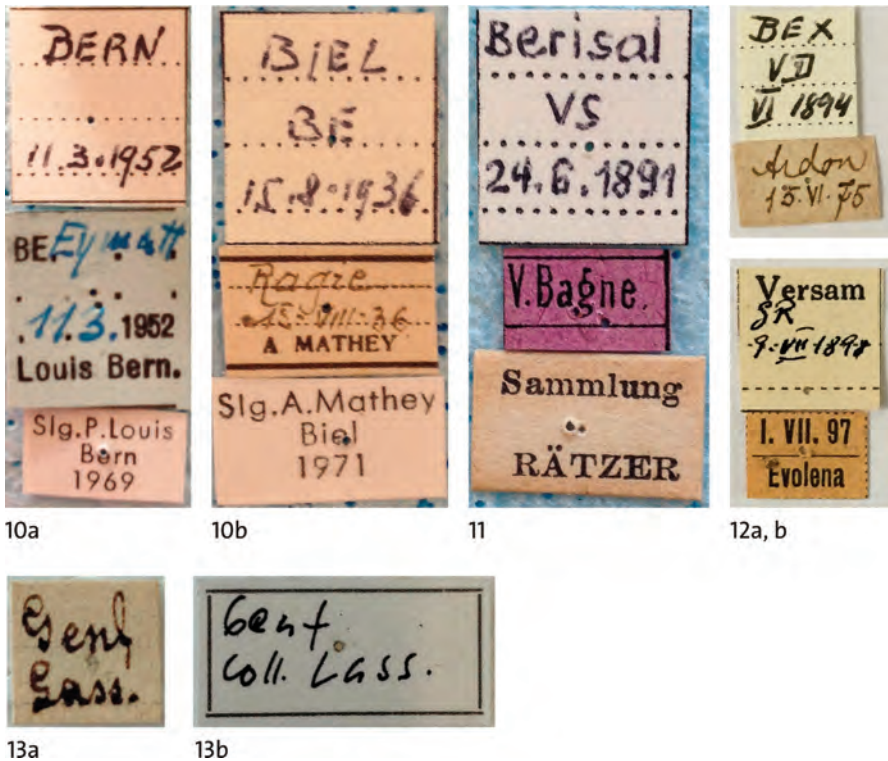 BERN
11.3.1952
BE. Eymatt
11.3.1952
Louis Bern.
Slg.P.Louis
Bern
1969
10a
BIEL
BE
15.8.1936
Ragie
15.VIII.36
A MATHEY
Slg.A.Mathey
Biel
1971
10b
Berisal
VS
24.6.1891
V.Bagne.
Sammlung
RÄTZER
11
BEX
VD
VI 1894
Ardon
15.VI.75
Versam
GR
9.VII 1898
I. VII. 97
Evolena
12a, b
Genf
Lass.
13a
Genf
Coll. Lass.
13b